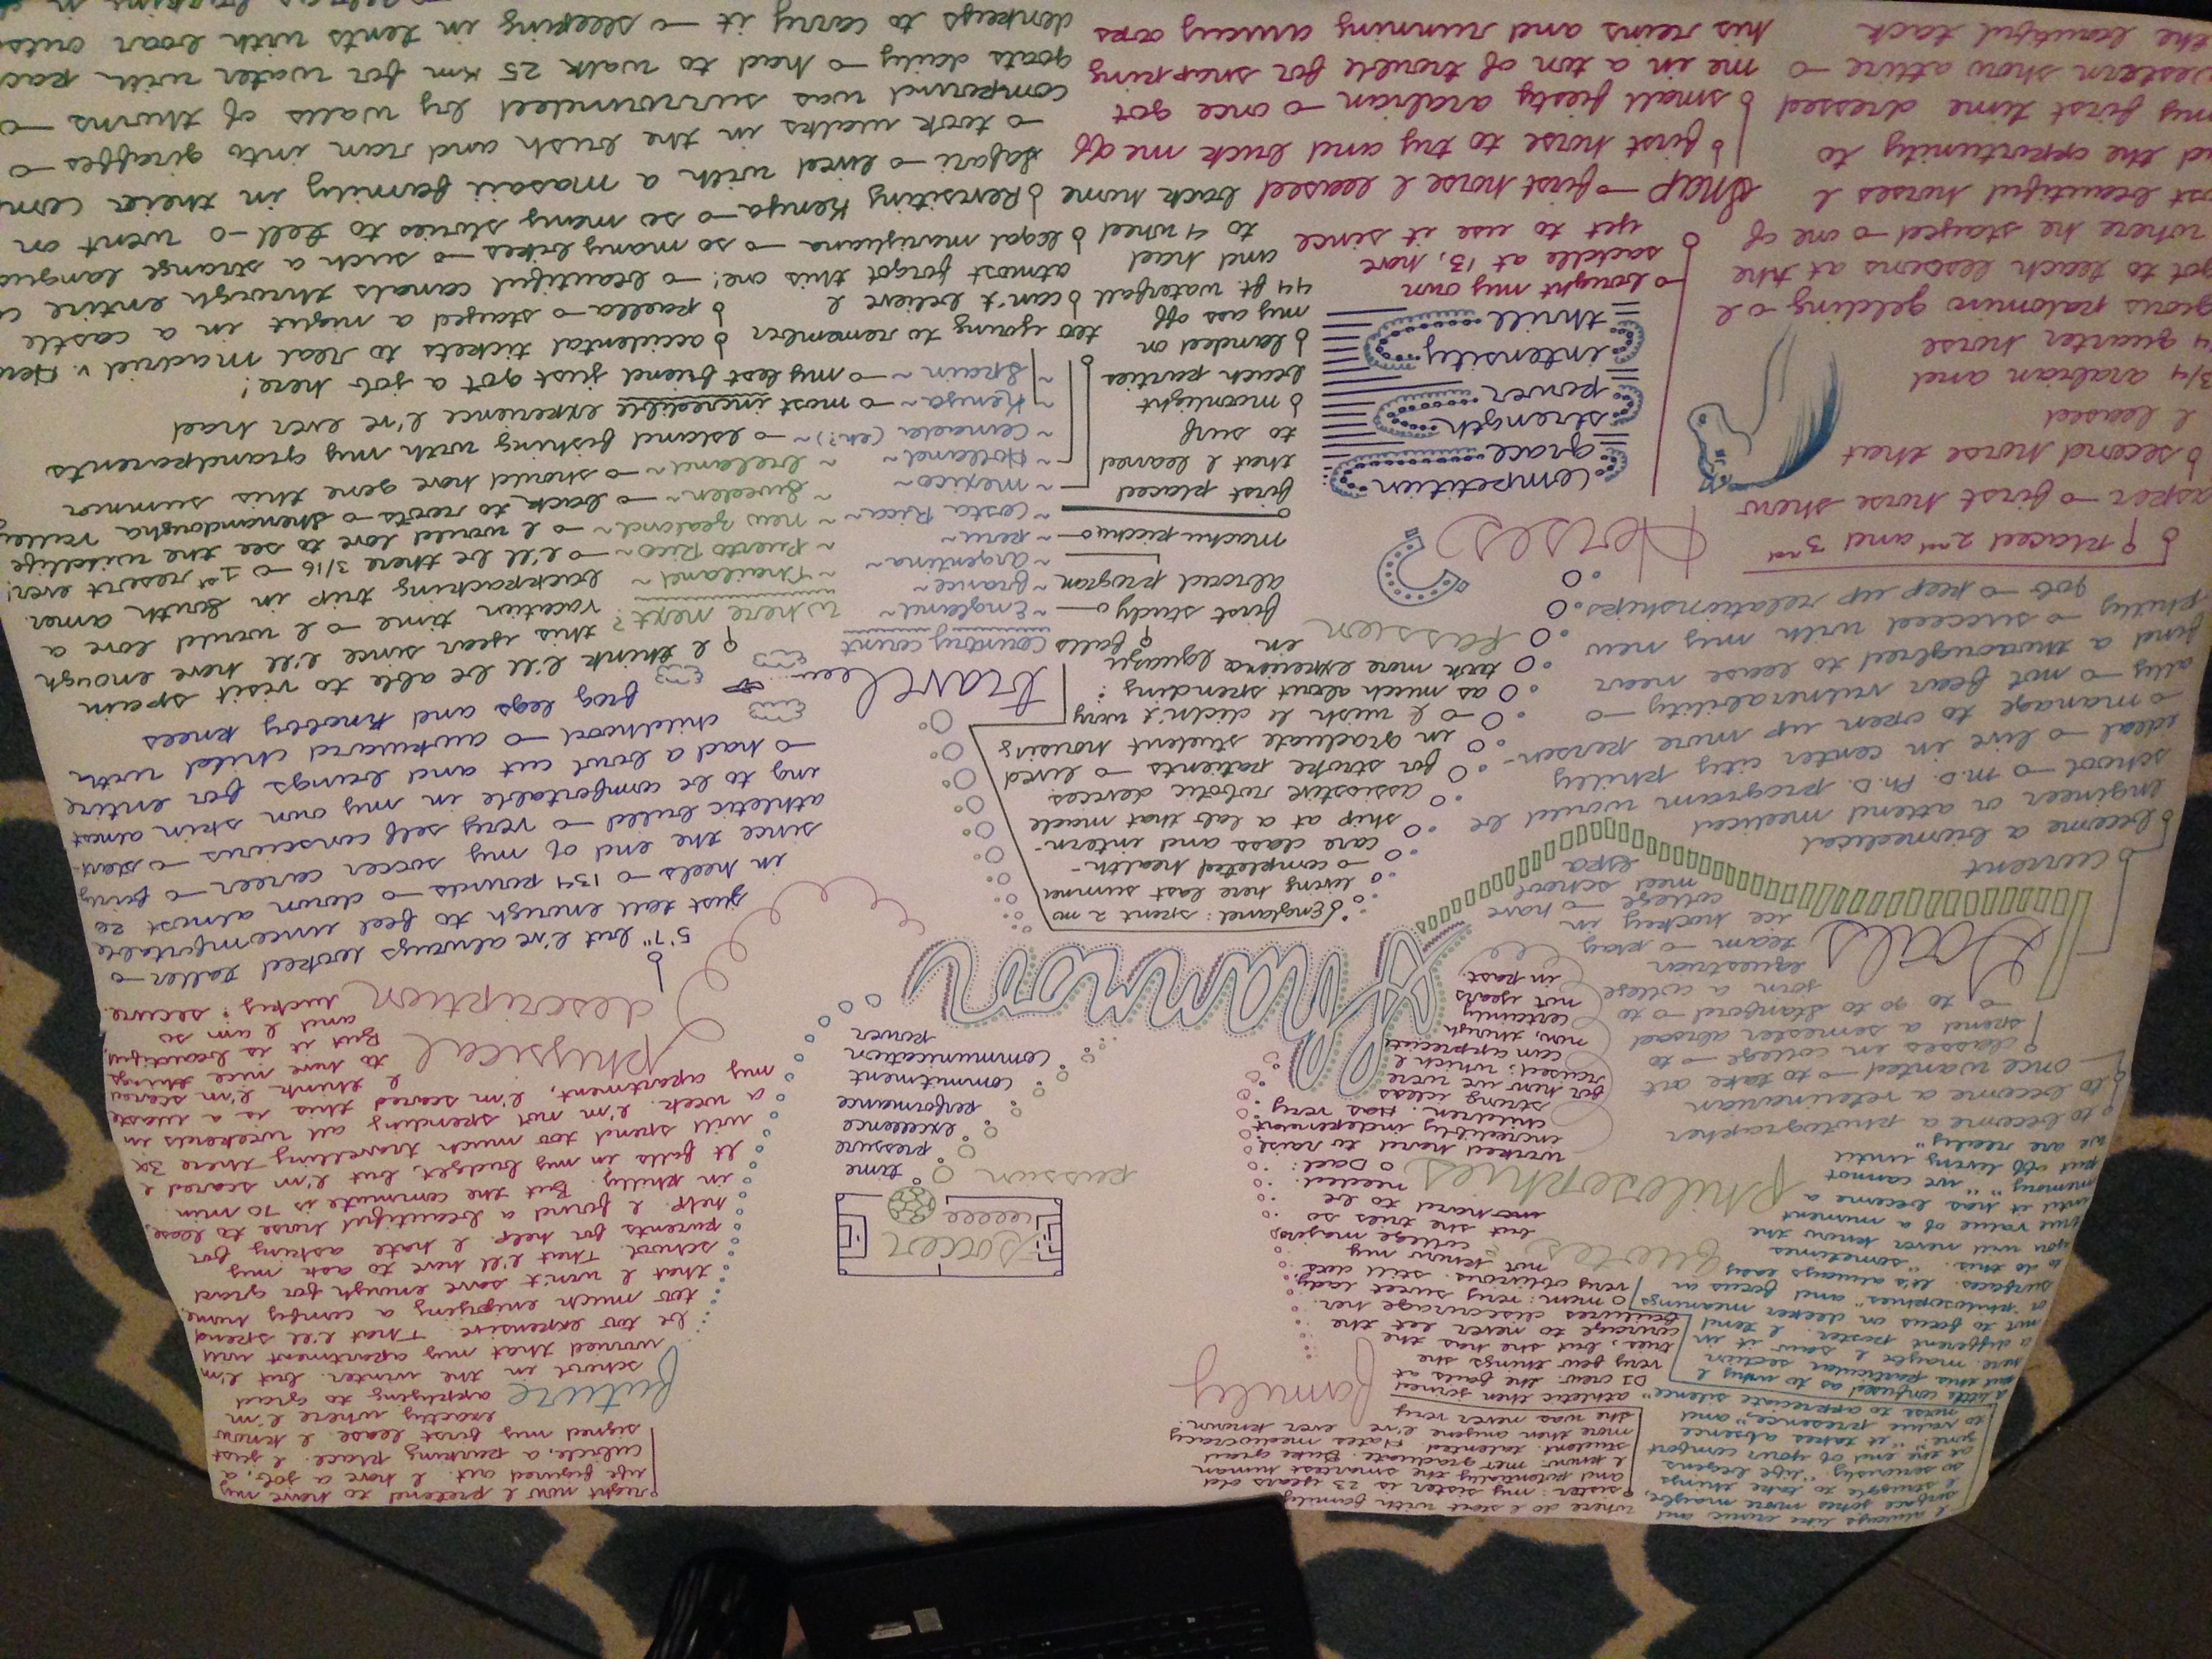 I always like ironic and
surface jokes more maybe,
I struggle to take things
so seriously. "life begins
at the end of your comfort
zone." "it takes absence
to value presence," and
"noise to appreciate silence"
a little confused as to why I
put this particular section
here. maybe I saw it in
a different poster. I tend
not to focus on deeper meanings
or "philosophies" and focus on
surfaces. It's always easy
to do this. "sometimes
you will never know the
true value of a moment
until it has become a
memory" "we cannot
put off living until
we are ready"
Quotes &
Philosophies
where do I start with family.
sister: my sister is 23 years old
and potentially the smartest human
I know. met graduate. Duke grad
student. talented. Hates mediocracy
more then anyone I've ever known.
she was never very
athletic then joined
DJ crew. she fails at
very few things she
tries, but she has the
courage to never let the
failures discourage her.
mom: very sweet lady,
very oblivious. still does
not know my
college major,
but she tries so
hard to be
needed.
Dad:
worked hard to raise
incredibly independent
children. Has very
strong ideas
for how we were
raised; which I
can appreciate
now, though
certainly
not years
in past
Family
right now I pretend to have my
life figured out. I have a job, a
cubicle, a parking place. I just
signed my first lease. I know
exactly where I'm
applying to grad
school in the winter. but I'm
worried that my apartment will
be too expensive. That I'll spend
too much enjoying a comfy home,
that I won't save enough for grad
school. That I'll have to ask my
parents for help. I hate asking for
help. I found a beautiful horse to lease,
in philly. But the commute is 70 min.
It falls in my budget, but I'm scared I
will spend too much travelling there 3x
a week. I'm not spending all weekends in
my apartment, I'm scared this is a waste
I think I'm scared
to have nice things.
But it is beautiful,
and I am so
lucky & secure.
Future
soccer
passion
time
pressure
excellence
performance
commitment
communication
power
Shannon
Goals
to become a photographer
to become a veterinarian
once wanted → to take art
classes in college → to
spend a semester abroad
→ to go to Stanford → to
join a college
equestrian
team → play
ice hockey in
college → have
med school
current
become a biomedical
engineer or attend medical
school → M.D. Ph.D. program would be
ideal → live in center city philly
→ manage to open up more person-
ally → not fear vulnerability →
find a thoroughbred to lease near
philly → succeed with my new
job → keep up relationships
physical description
5'7" but I've always looked taller →
just tall enough to feel uncomfortable
in heels → 134 pounds → down almost 20
since the end of my soccer career → fairly
athletic build → very self conscious → start-
ing to be comfortable in my own skin almost
→ had a bowl cut and bangs for entire
childhood → awkward child with
frog legs and knobby knees
England: spent 2 mo
living here last summer
→ completed health-
care class and intern-
ship at a lab that made
assistive robotic devices
for stroke patients → lived
in graduate student housing
→ I wish I didn't worry
as much about spending &
took more excursions
travel
country count
~ England ~
~ france ~
~ Argentina ~
~ peru ~
~ Costa Rica ~
~ mexico ~
~ Holland ~
~ Canada (eh?) ~
~ Kenya ~
~ Spain ~
first study
abroad program
Iguazu
falls in
machu picchu
first placed
that I learned
to surf
moonlight
beach parties
landed on
my ass off
44 ft. waterfall
and had
to 4 wheel
where next?
~ Thailand ~
~ Puerto Rico ~
~ new zealand ~
~ Sweden ~
~ Ireland ~
I think I'll be able to visit spain
this year since I'll have enough
vacation time → I would love a
backpacking trip in South amer.
→ I'll be there 3/16 → 1st resort ever!
→ I would love to see the wildlife
→ back to roots → shenandoagha valley
→ should have gone this summer
→ Island fishing with my grandparents
→ most incredible experience I've ever had
→ my best friend just got a job here!
too young to remember
accidental tickets to real madrid v.
paella → stayed a night in a castle
can't believe I
almost forgot this one! → beautiful canals through entire
legal marijuana → so many bikes → such a strange
Revisiting Kenya → so many stories to tell → went on
safari → lived with a masaii family in their
→ took walks in the bush and ran into giraffes →
compound was surrounded by walls of thorns →
goats daily → had to walk 25 km for water with
donkeys to carry it → sleeping in tents with
passion
Horses
Competition
grace
strength
power
intensity
thrill
→ bought my own
saddle at 13, have
yet to use it since
Snap → first horse I leased back home
first horse to try and buck me off
small fiesty arabian → once got
me in a ton of trouble for snapping
his reins and running away
placed 2nd and 3rd
→ first horse show
second horse that
I leased
3/4 arabian and
1/4 quarter horse
palomino gelding → I
got to teach lessons at the
where he stayed → one of
beautiful horses I
the opportunity to
my first time dressed
western show attire →
the beautiful tack